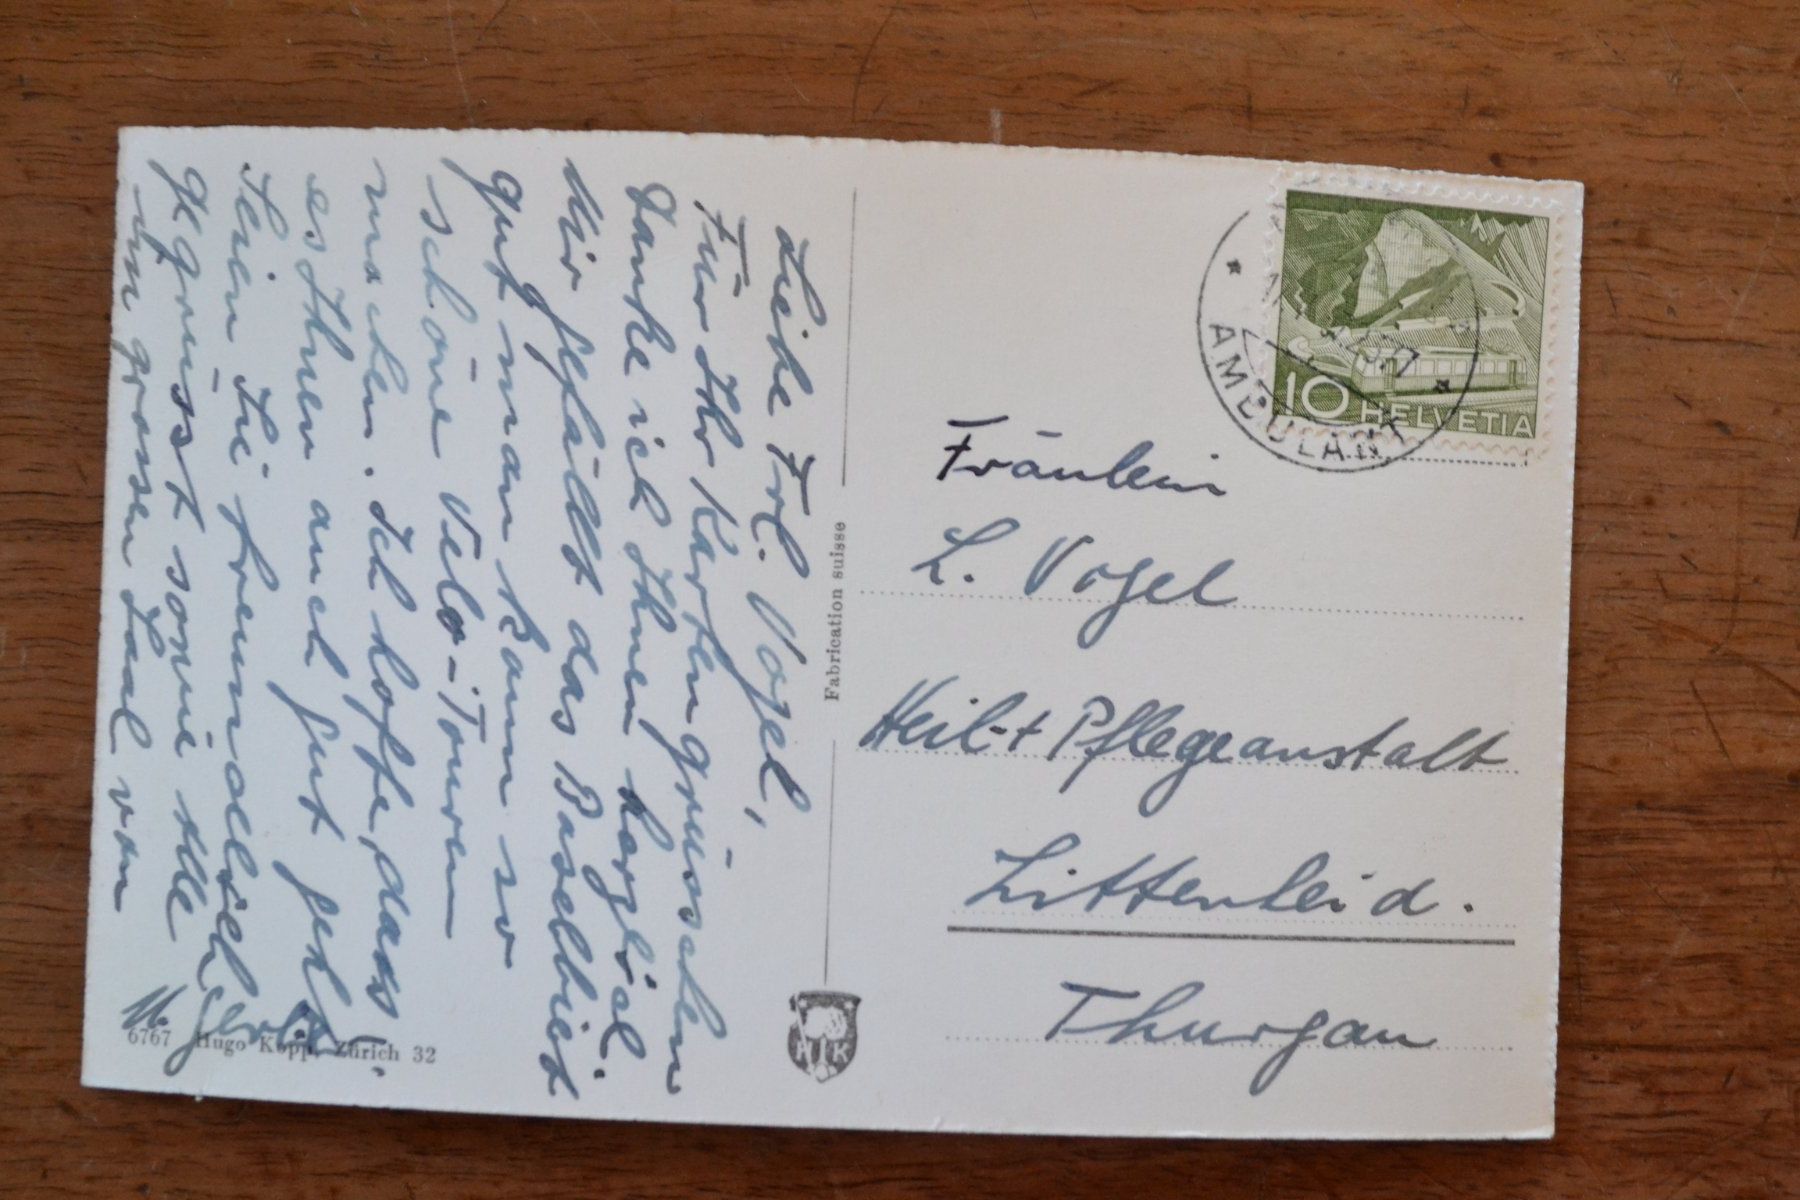 Liebe Frl. Vogel,
Für Ihr Kartengrüsschen
danke ich Ihnen herzlich.
Mir gefällt das Baselbiet
gut man kann so
schöne Velo-Touren
machen. Ich hoffe, dass
es Ihnen auch gut geht.
Seien Sie freundlich
gegrüsst sowie alle
im grossen Saal von
Fabrication suisse
6767 Hugo Kopp, Zürich 32
HK
AMBULANT
10 HELVETIA
Fräulein
L. Vogel
Heil- + Pflegeanstalt
Littenheid.
Thurgau